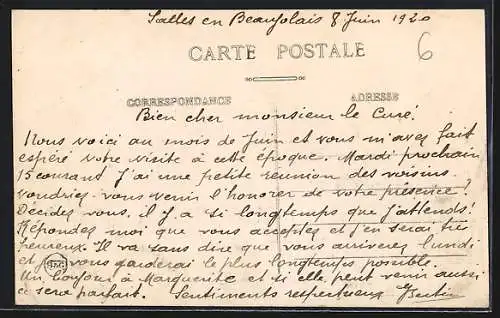 Salles en Beaujolais 8 Juin 1920
6
CARTE POSTALE
CORRESPONDANCE ADRESSE
Bien cher monsieur le Curé.
Nous voici au mois de Juin et vous m'avez fait
espéré votre visite à cette époque. Mardi prochain
15 courand J'ai une petite réunion des voisins.
Voudriez-vous venir l'honorer de votre présence!
Décidez vous. il y a si longtemps que j'attends!
Répondez moi que vous acceptez et j'en serai très
heureux. Il va sans dire que vous arriverez lundi
et vous garderai le plus longtemps possible.
Un bonjour à Marguerite et si elle peut venir aussi
ce sera parfait. Sentiments respectueux